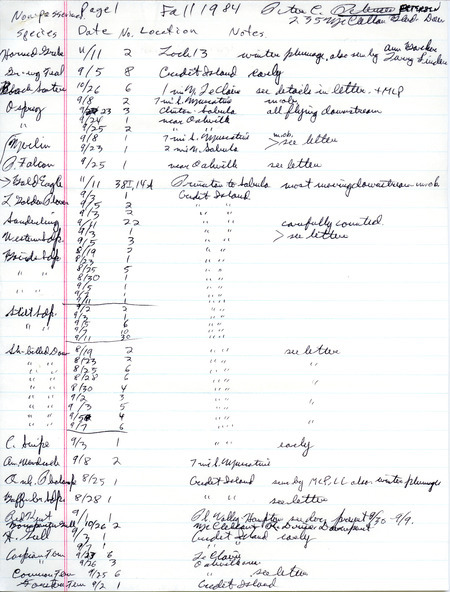 Non-passerines Page 1 Fall 1984 Peter C. Petersen PETERSEN
235 McClellan Blvd Dav
Species Date No. Location Notes
Horned Grebe 11/11 2 Lock 13 winter plumage, also seen by Ann Barker
Larry Linder
Gr-wing Teal 9/5 8 Credit Island early
Black Scoter 10/26 6 1 mi N. LeClaire see details in letter. + MLP
Osprey 9/8 2 7 mi S. Muscatine imob.
9/23 3 Clinton-Sabula all flying downstream
9/24 near Oakville
9/25 2 " "
Merlin 9/8 1 7 mi S. Muscatine imob. > see letter
9/23 1 2 mi N. Sabula
P. Falcon 9/25 1 near Oakville see letter
> Bald Eagle 11/11 38I, 14A Princeton to Sabula most moving downstream imob
L. Golden Plover 9/3 1 Credit Island
9/5 2 " "
Sanderling 9/3 2 " "
9/11 22 " " carefully counted
Western Sdp. 9/3 1 " " > see letter
9/5 3 " "
Baird's Sdp. 8/19 2 " "
8/23 1 " "
8/25 5 " "
8/30 1 " "
9/5 1 " "
9/7 1 " "
9/11 1 " "
Stilt Sdp. 9/2 2 " "
" " 9/3 1 " "
9/5 6 " "
9/7 10 " "
9/11 30 " "
Sh-billed Dow 8/19 2 " " see letter
" " 8/23 2 " " "
" " 8/25 6 " "
" " 8/28 6 " " "
" " 8/30 4 " "
" " 9/2 3 " "
" " 9/3 5 " " "
" " 9/5 4 " "
" " 9/7 6 " " "
C. Snipe 9/3 1 " " early
Am. Woodcock 9/8 2 7 mi S. Muscatine
R-n. Phalarope 8/25 1 Credit Island seen by MLP, LL also. winter plumage
Buff-br Sdp. 8/28 1 " " see letter
Red Knot Pl. Valley, Hampton see doc, present 8/30-9/9.
Bonaparte's Gull 10/26 2 McClellan
H. Gull 9/3 1 Credit Island early
9/7 1 " "
Caspian Tern 9/23 6 LeClaire
" " 9/26 3 Oakville
Common Tern 9/25 6 " see letter
Forster's Tern 9/2 1 Credit Island